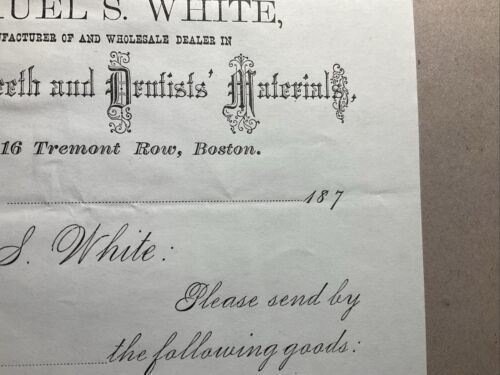 UEL S. WHITE,
UFACTURER OF AND WHOLESALE DEALER IN
eeth and Dentists' Materials,
16 Tremont Row, Boston.
187
S. White:
Please send by
the following goods: